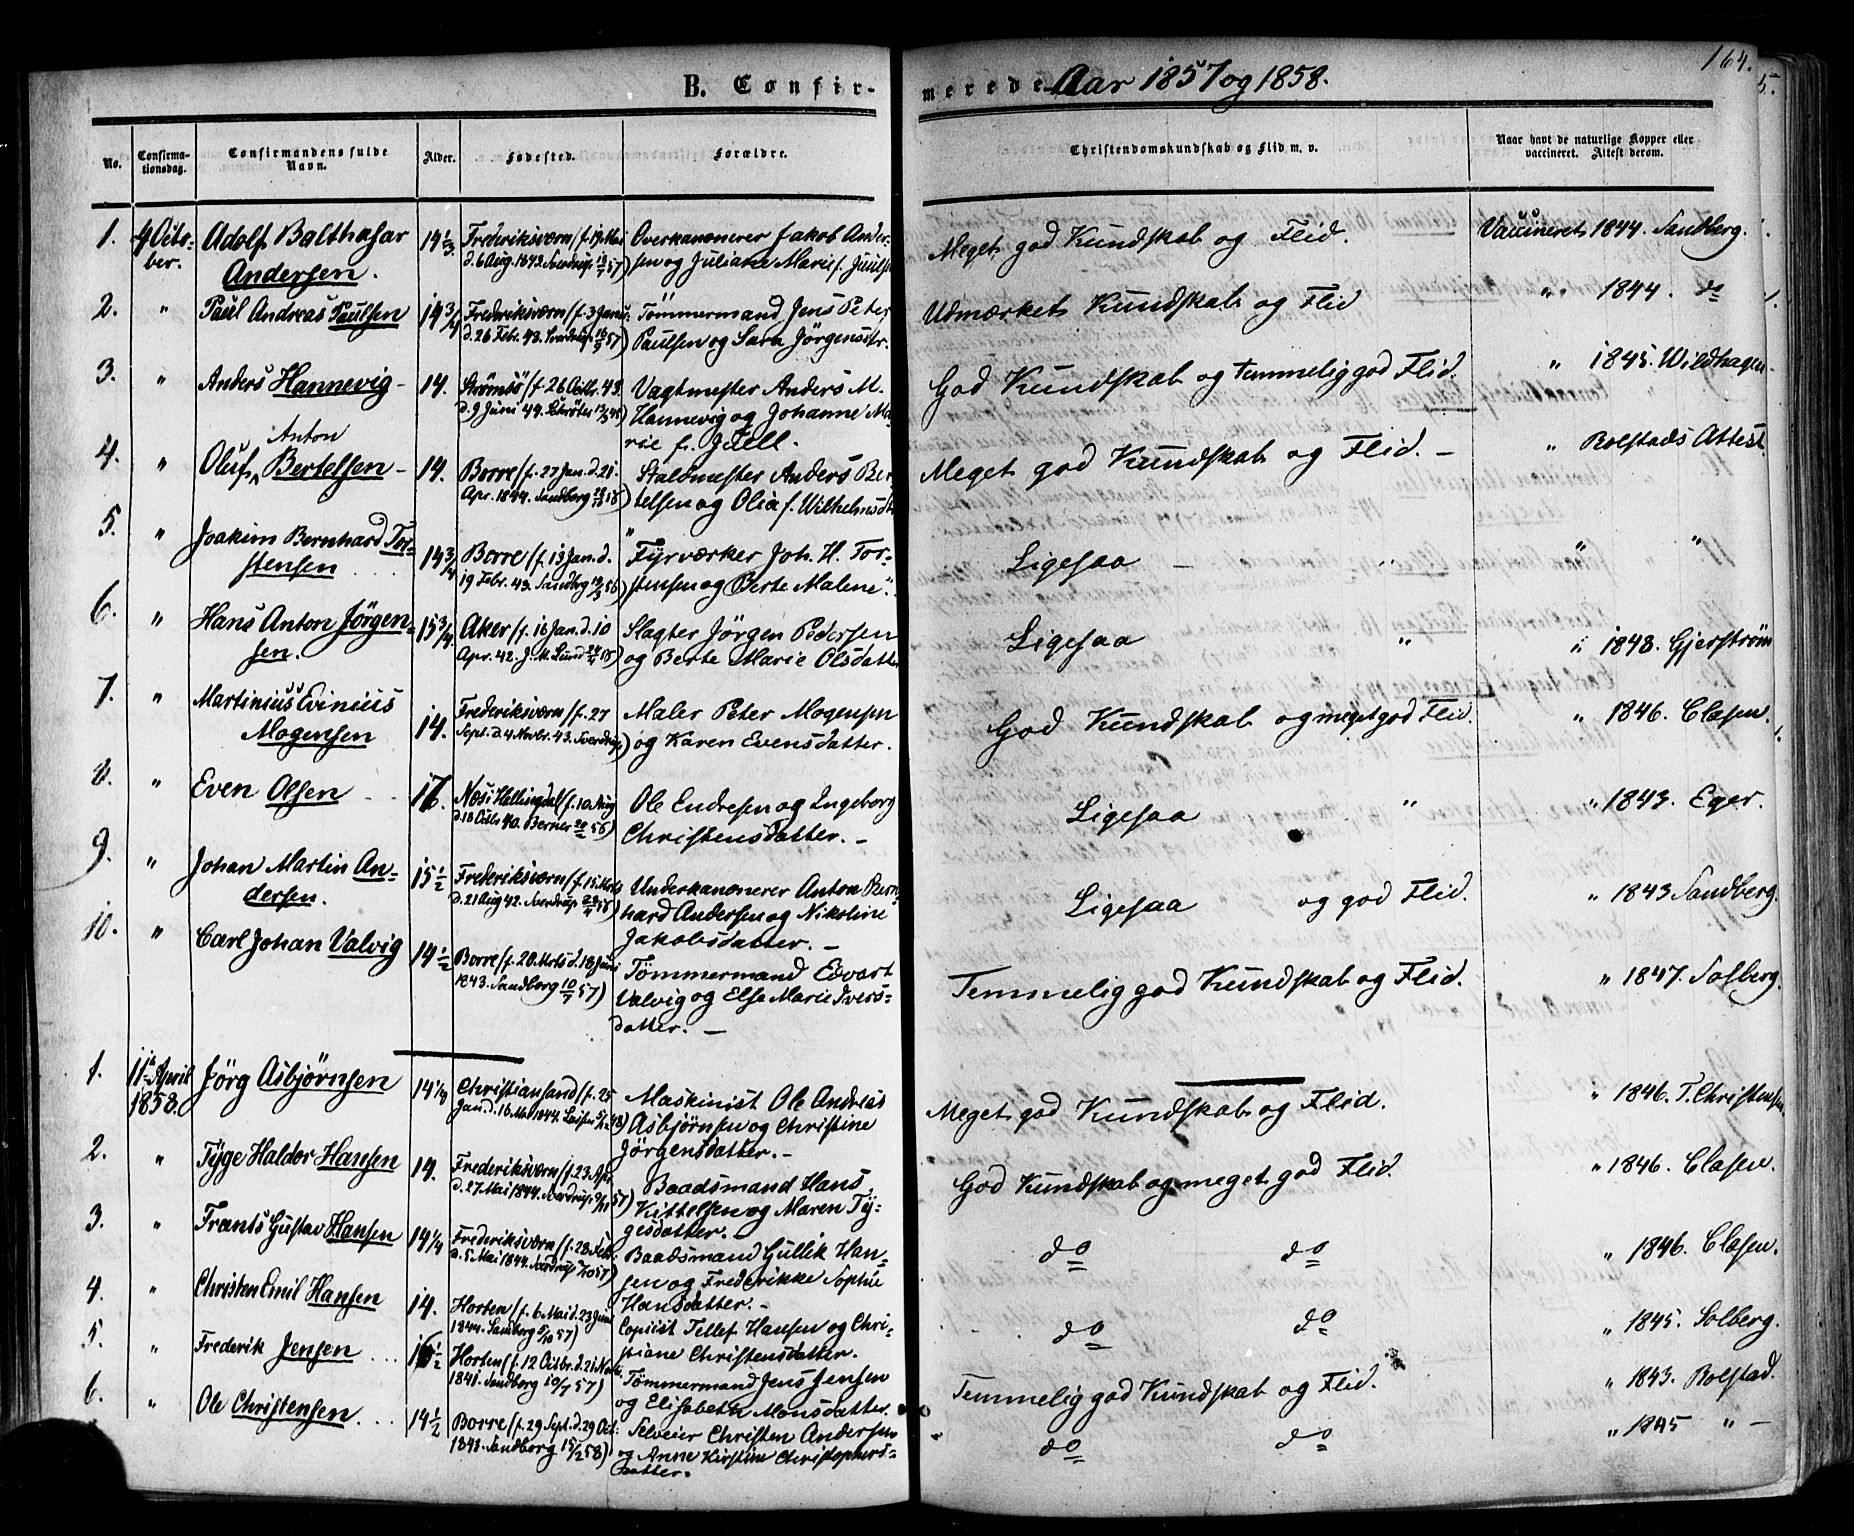 164.
5.
B. Confirmerede Aar 1857 og 1858.
No.
Confirmationsdag.
Confirmandens fulde Navn.
Alder.
Fødested.
Forældre.
Christendomskundskab og Flid m. v.
Naar havt de naturlige Kopper eller vaccineret. Attest derom.
1. 4 Octo- Adolf Balthasar 14 1/3 Frederiksværn (f. 19 Mai Overkanonerer Jakob Ander- Meget god Kundskab og Flid. Vaccineret 1844. Sandberg.
ber. Andersen. d. 6 Aug. 1843. Sverdrup 57) sen og Juliane Marie f. Juulsen
2. " Paul Andreas Paulsen 14 3/4 Frederiksværn (f. 3 Januar Tömmermand Jens Peter Udmærket Kundskab og Flid " 1844. do
d. 26 Febr. 43. Sverdrup 57) Paulsen og Sara Jörgensdtr.
3. " Anders Hannevig - 14. Strömsö (f. 26 Octbr. 43. Vagtmester Anders M. God Kundskab og temmelig god Flid. " 1845. Wildhagen.
d. 9 Juni 44. Hannevig og Johanne Ma-
rie f. Fell.
4. " Oluf Anton Bertelsen - 14. Borre (f. 27 Jan. d. 21. Staldmester Anders Ber- Meget god Kundskab og Flid. - " Rolstads Attest
Apr. 1844. Sandberg telsen og Olia f. Wilhelmsdtr
5. " Joakim Bernhard Tor- 14 3/4 Borre (f. 13 Jan. d. Fyrværker Joh. H. Tor- Ligesaa - " " "
stensen 19 Febr. 43. Sandbrg stensen og Berte Malene "
6. " Hans Anton Jörgen- 15 3/4 Aker (f. 16 Jan. d. 10 Slagter Jörgen Pedersen Ligesaa " " 1848. Gjerström
sen. Apr. 42. J. M. Lund og Berte Marie Olsdatter
7. " Martinius Evinius 14. Frederiksværn (f. 27 Maler Peter Mogensen God Kundskab og meget god Flid. " 1846. Clasen.
Mogensen Sept. d. 4 Novbr. 43. Sverdrup) og Karen Evensdatter.
8. " Even Olsen - 17. Næs i Hallingdal (f. 10 Aug Ole Endresen og Ingeborg Ligesaa " " 1843. Eger.
d. 18 Octbr 40. Berner 56) Christensdatter. -
9. " Johan Martin An- 15 1/2 Frederiksværn (f. 15 Mrts Underkanonerer Anton Bern- Ligesaa og god Flid. " 1843 Sandberg.
dersen. d. 21 Aug 42. Sverdrup hard Andersen og Nikoline
Jakobsdatter. -
10. " Carl Johan Valvig 14 1/2 Borre (f. 20. Mrts d. 18 Juni Tömmermand Edvart Temmelig god Kundskab og Flid. " 1847. Solberg.
1843. Sandberg 10/7 57) Valvig og Else Marie Ivers-
datter. -
1. 11te April Jörg Asbjørnsen 14 1/4 Christiansand (f. 25 Maskinist Ole Andreas Meget god Kundskab og Flid. " 1846. T. Christensen
1858. Jan. d. 16 1844. Asbjørnsen og Christine
Jörgensdatter. -
2. " Tyge Haldor Hansen 14. Frederiksværn (f. 23. Apr. Baadsmand Hans God Kundskab og meget god Flid. " 1846. Clasen.
d. 27. Mai 1844. Sverdrup 9/11 57) Kittelsen og Maren Ty-
gesdatter. -
3. " Frants Gustav Hansen 14 1/4 Frederiksværn (f. 28. Febr. Baadsmand Gullik Han- do do " 1846. Clasen.
d. 5 Mai 1844. Sverdrup 57) sen og Frederikke Sophie
Hansdatter. -
4. " Christen Emil Hansen 14. Horten (f. 6 Mai d. 23 Juni Copiist Tellef Hansen og Chri- do do " 1845. Solberg.
1844. Sandberg 5/10 57) stiane Christensdatter.
5. " Frederik Jensen 16 1/2 Horten (f. 12 Octbr. d. 21 Nov. Tömmermand Jens Jensen Temmelig god Kundskab og Flid. " 1843. Rolstad.
1841. Sandberg 10/7 57) og Elisabeth Monsdatter.
6. " Ole Christensen 14 1/2 Borre (f. 29 Sept. d. 29 Oct. Selveier Christen Andersen do do " 1845 " -
1843. Sandberg 15/2 58) og Anne Kirstine Christophers-
datter.